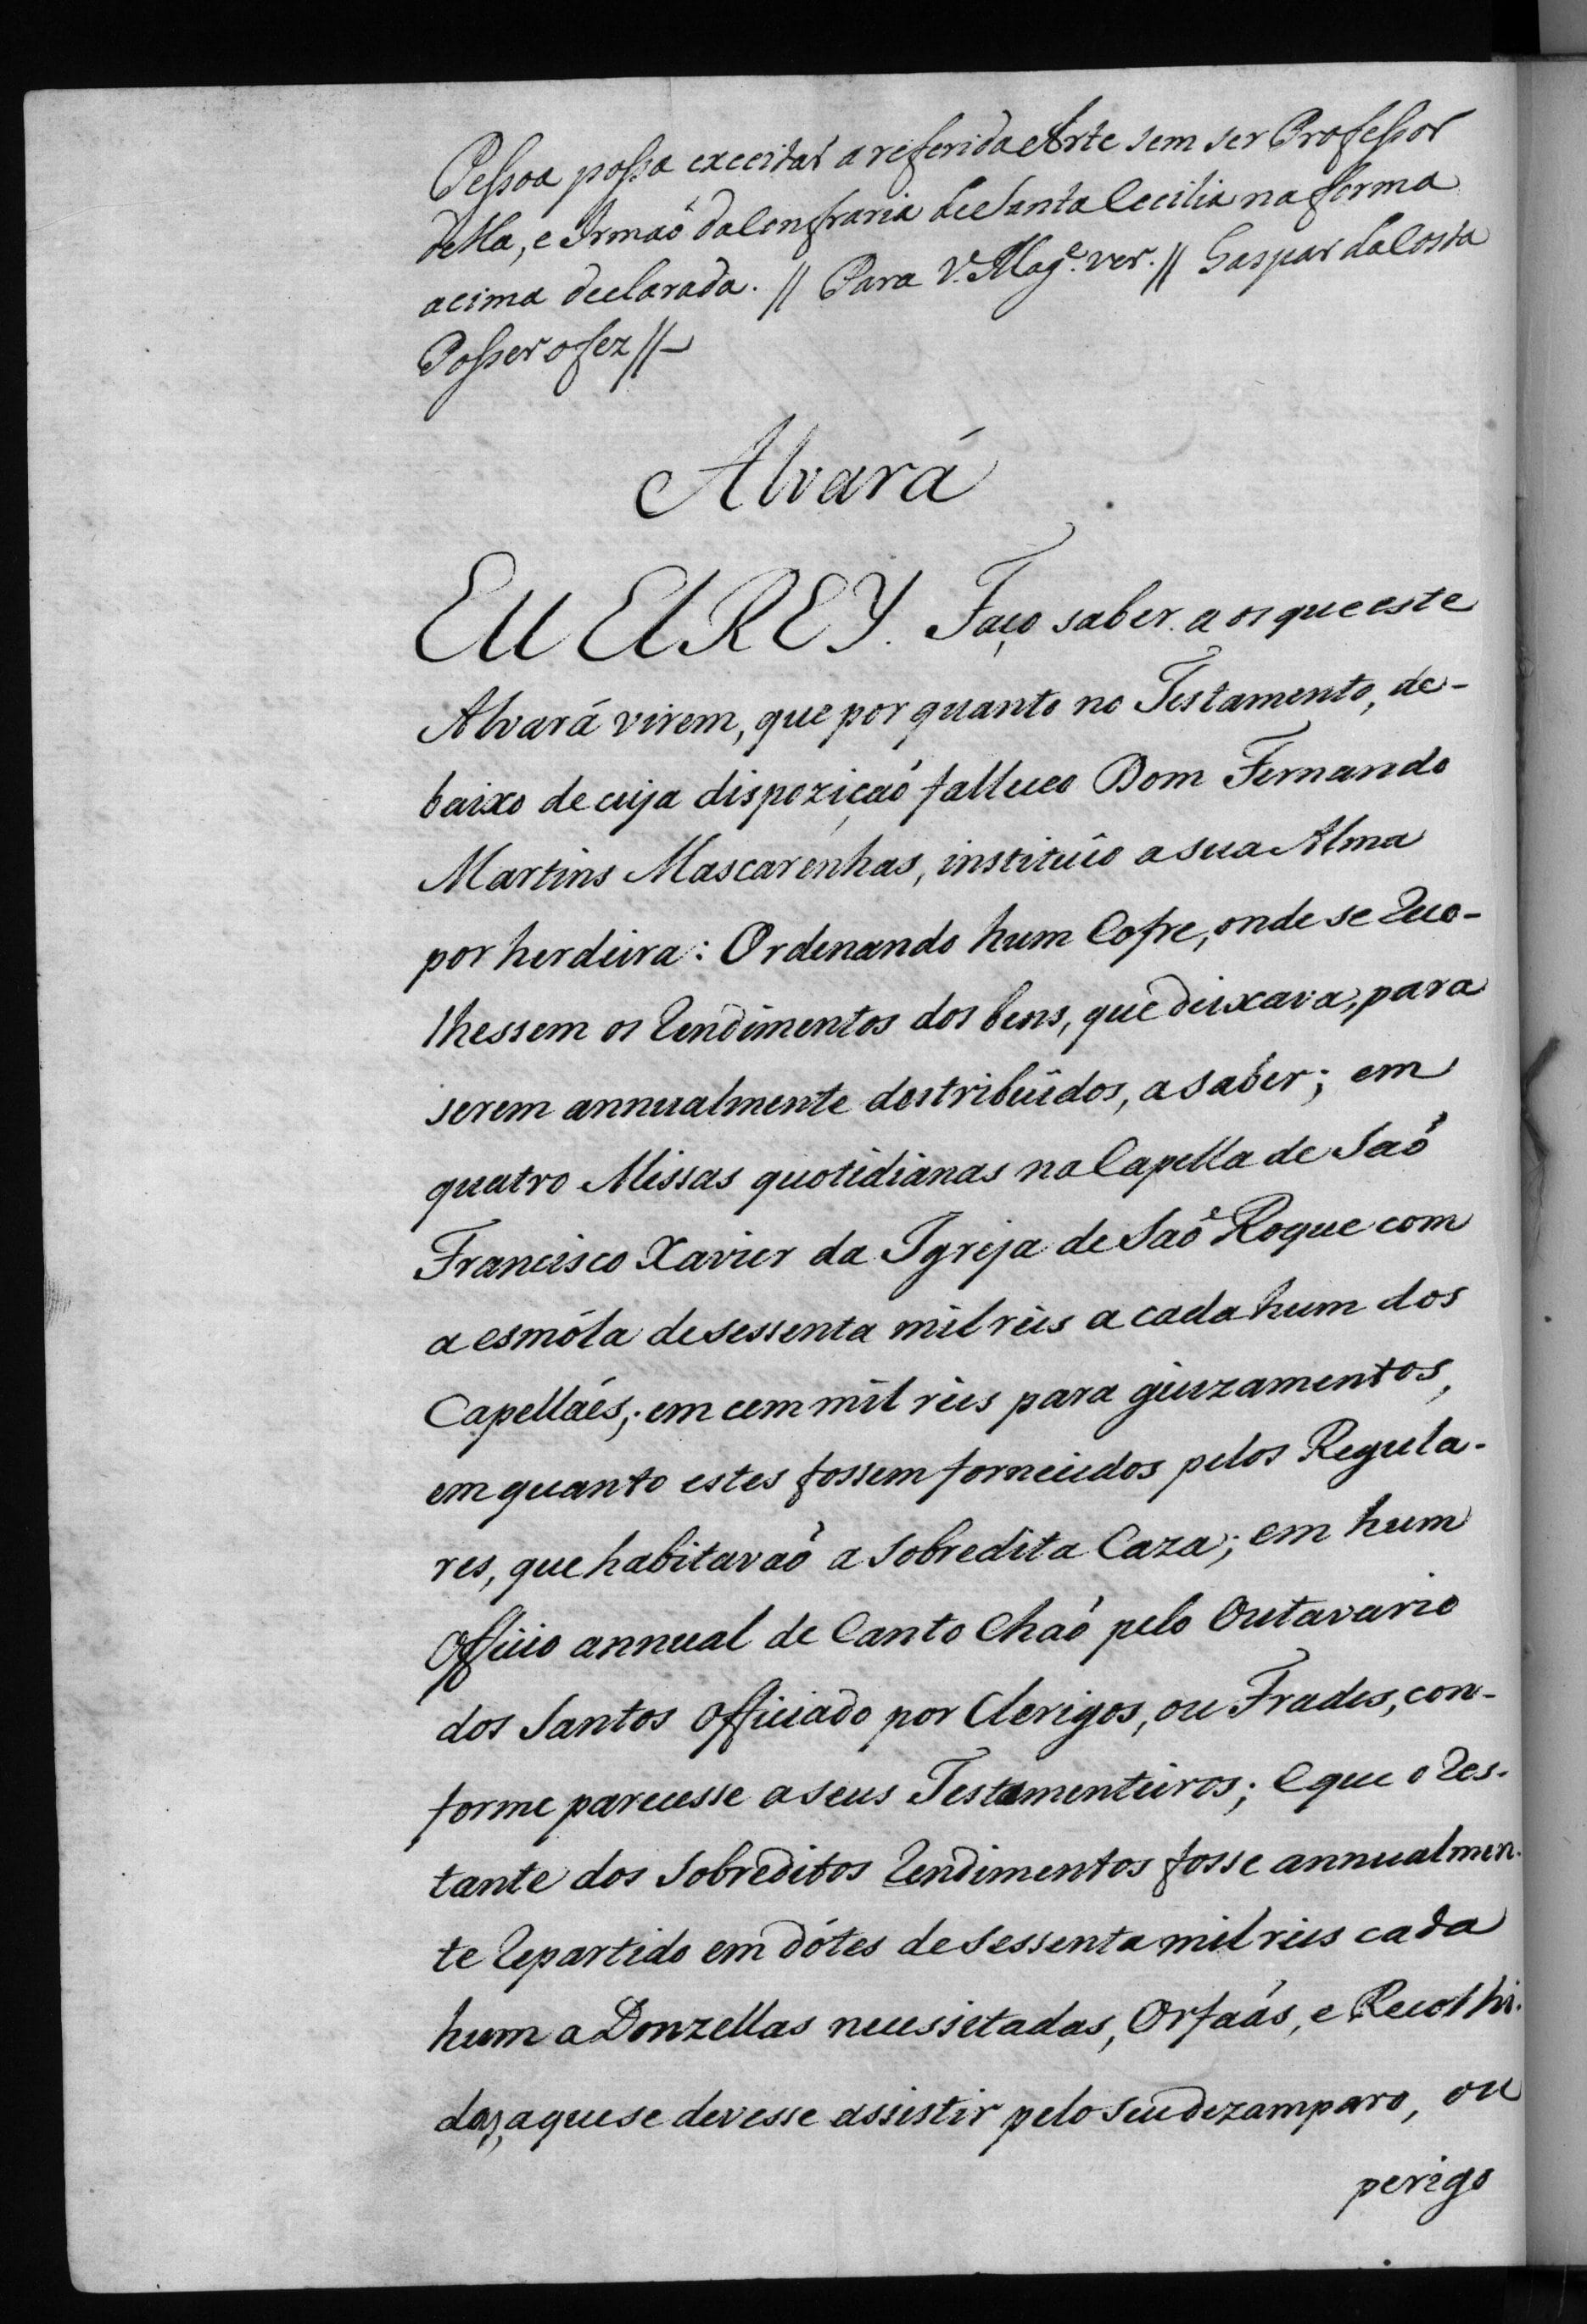 Pessoa possa execitar a referida Arte sem ser Professor
della, e Irmaõ da Confraria de Santa Cecilia na forma
acima declarada. // Para V. Mag.e ver. // Gaspar da Costa
Posser o fez //
Alvará
EU ElREY. Faço saber aos que este
Alvará virem, que por quanto no Testamento, de-
baixo de cuja dispoziçaõ falleceo Dom Fernando
Martins Mascarenhas, instituîo a sua Alma
por herdeira: Ordenando hum Cofre, onde se Reco-
lhessem os Rendimentos dos bens, que deixava, para
serem annualmente destribuîdos, a saber; em
quatro Missas quotidianas na Capella de Saõ
Francisco Xavier da Igreja de Saõ Roque com
a esmóla de sessenta mil reis a cada hum dos
Capellaẽs; em cem mil reis para guizamentos,
em quanto estes fossem fornecidos pelos Regula-
res, que habitavaõ a sobredita Caza; em hum
Officio annual de Canto Chaõ pelo Outavario
dos Santos officiado por Clerigos, ou Frades, con-
forme parecesse a seus Testamenteiros; E que o Res-
tante dos Sobreditos Rendimentos fosse annualmen-
te Repartido em dótes de Sessenta mil reis cada
hum a Donzellas necessitadas, Orfaãs, e Recolhi-
das, a que se devesse assistir pelo seu dezamparo, ou
perigo